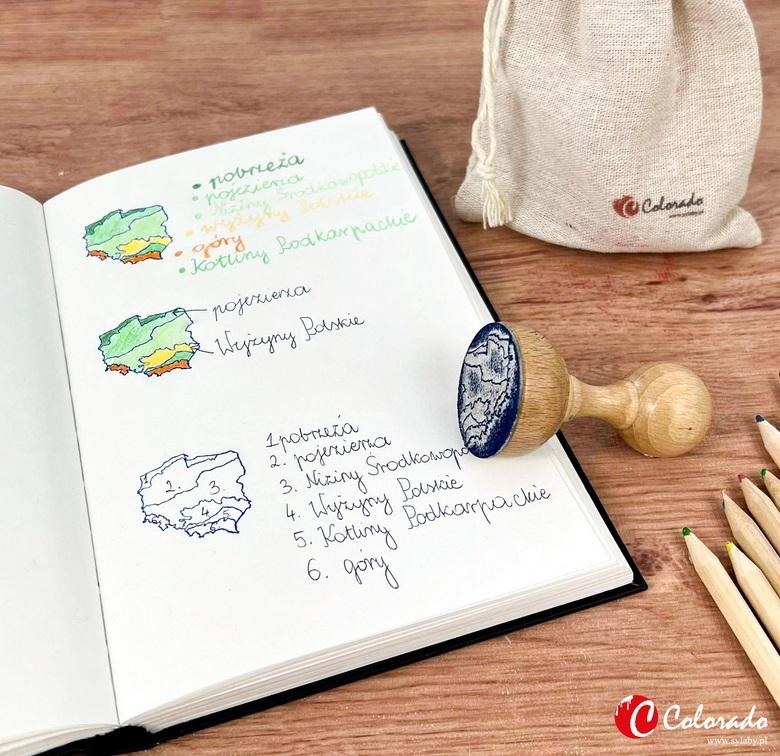 • pobrzeża
• pojezierza
• Niziny Środkowopolskie
• wyżyny Polskie
• góry
• Kotliny Podkarpackie
pojezierza
Wyżyny Polskie
1 pobrzeża
2. pojezierza
3. Niziny Środkowopo
4. Wyżyny Polskie
5. Kotliny Podkarpackie
6. góry
1. 3. 4 5
Colorado
C Colorado
www.sylaby.pl